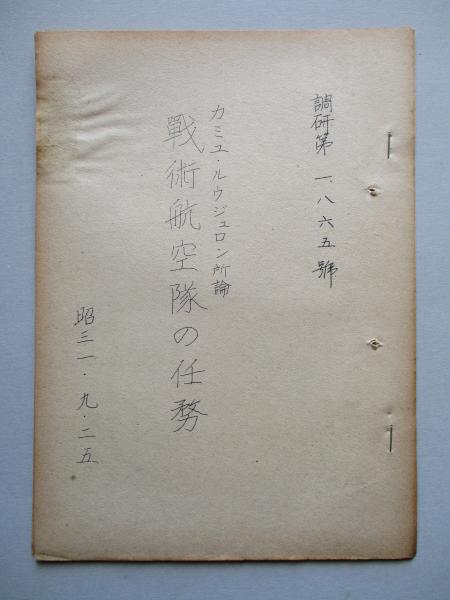 調研第一、八六五號
カミユ・ルウジュロン所論
戰術航空隊の任務
昭三一・九・二五